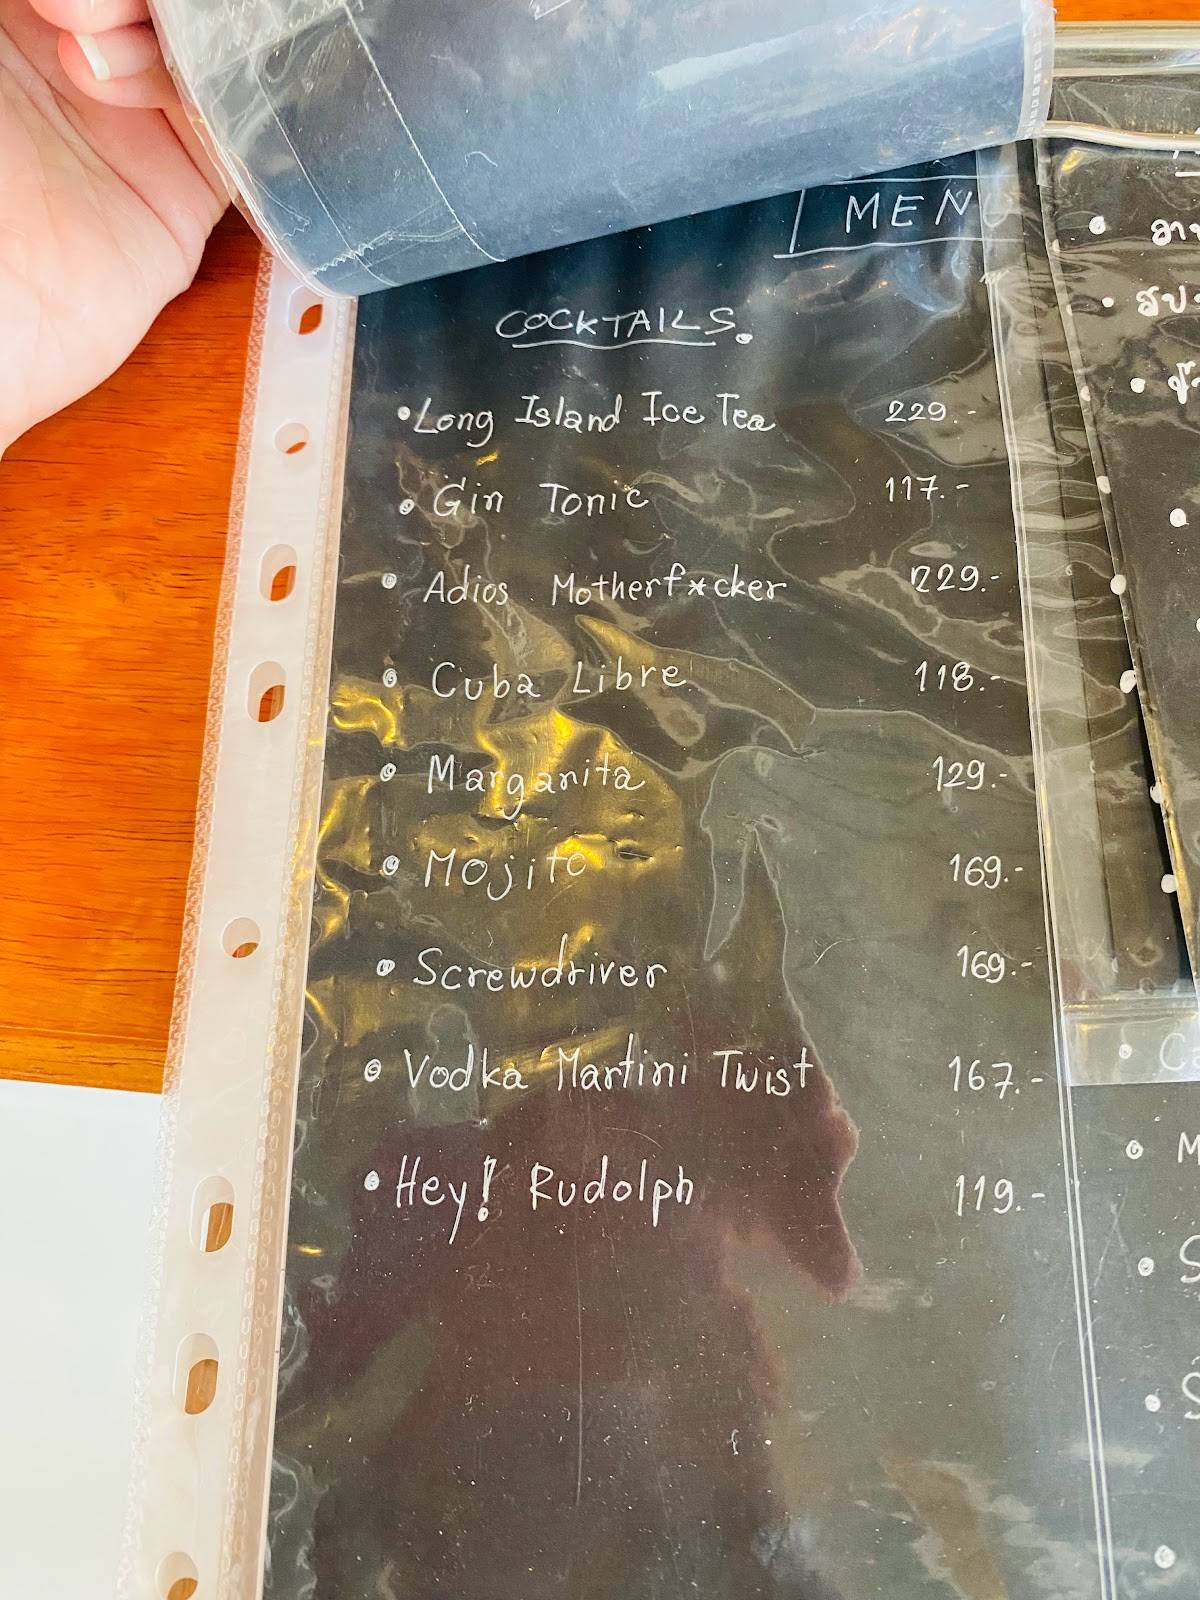 MENU
COCKTAILS.
• Long Island Ice Tea 229.-
• Gin Tonic 117.-
• Adios Motherf*cker 229.-
• Cuba Libre 118.-
• Marganita 129.-
• Mojito 169.-
• Screwdriver 169.-
• Vodka Martini Twist 167.-
• Hey! Rudolph 119.-